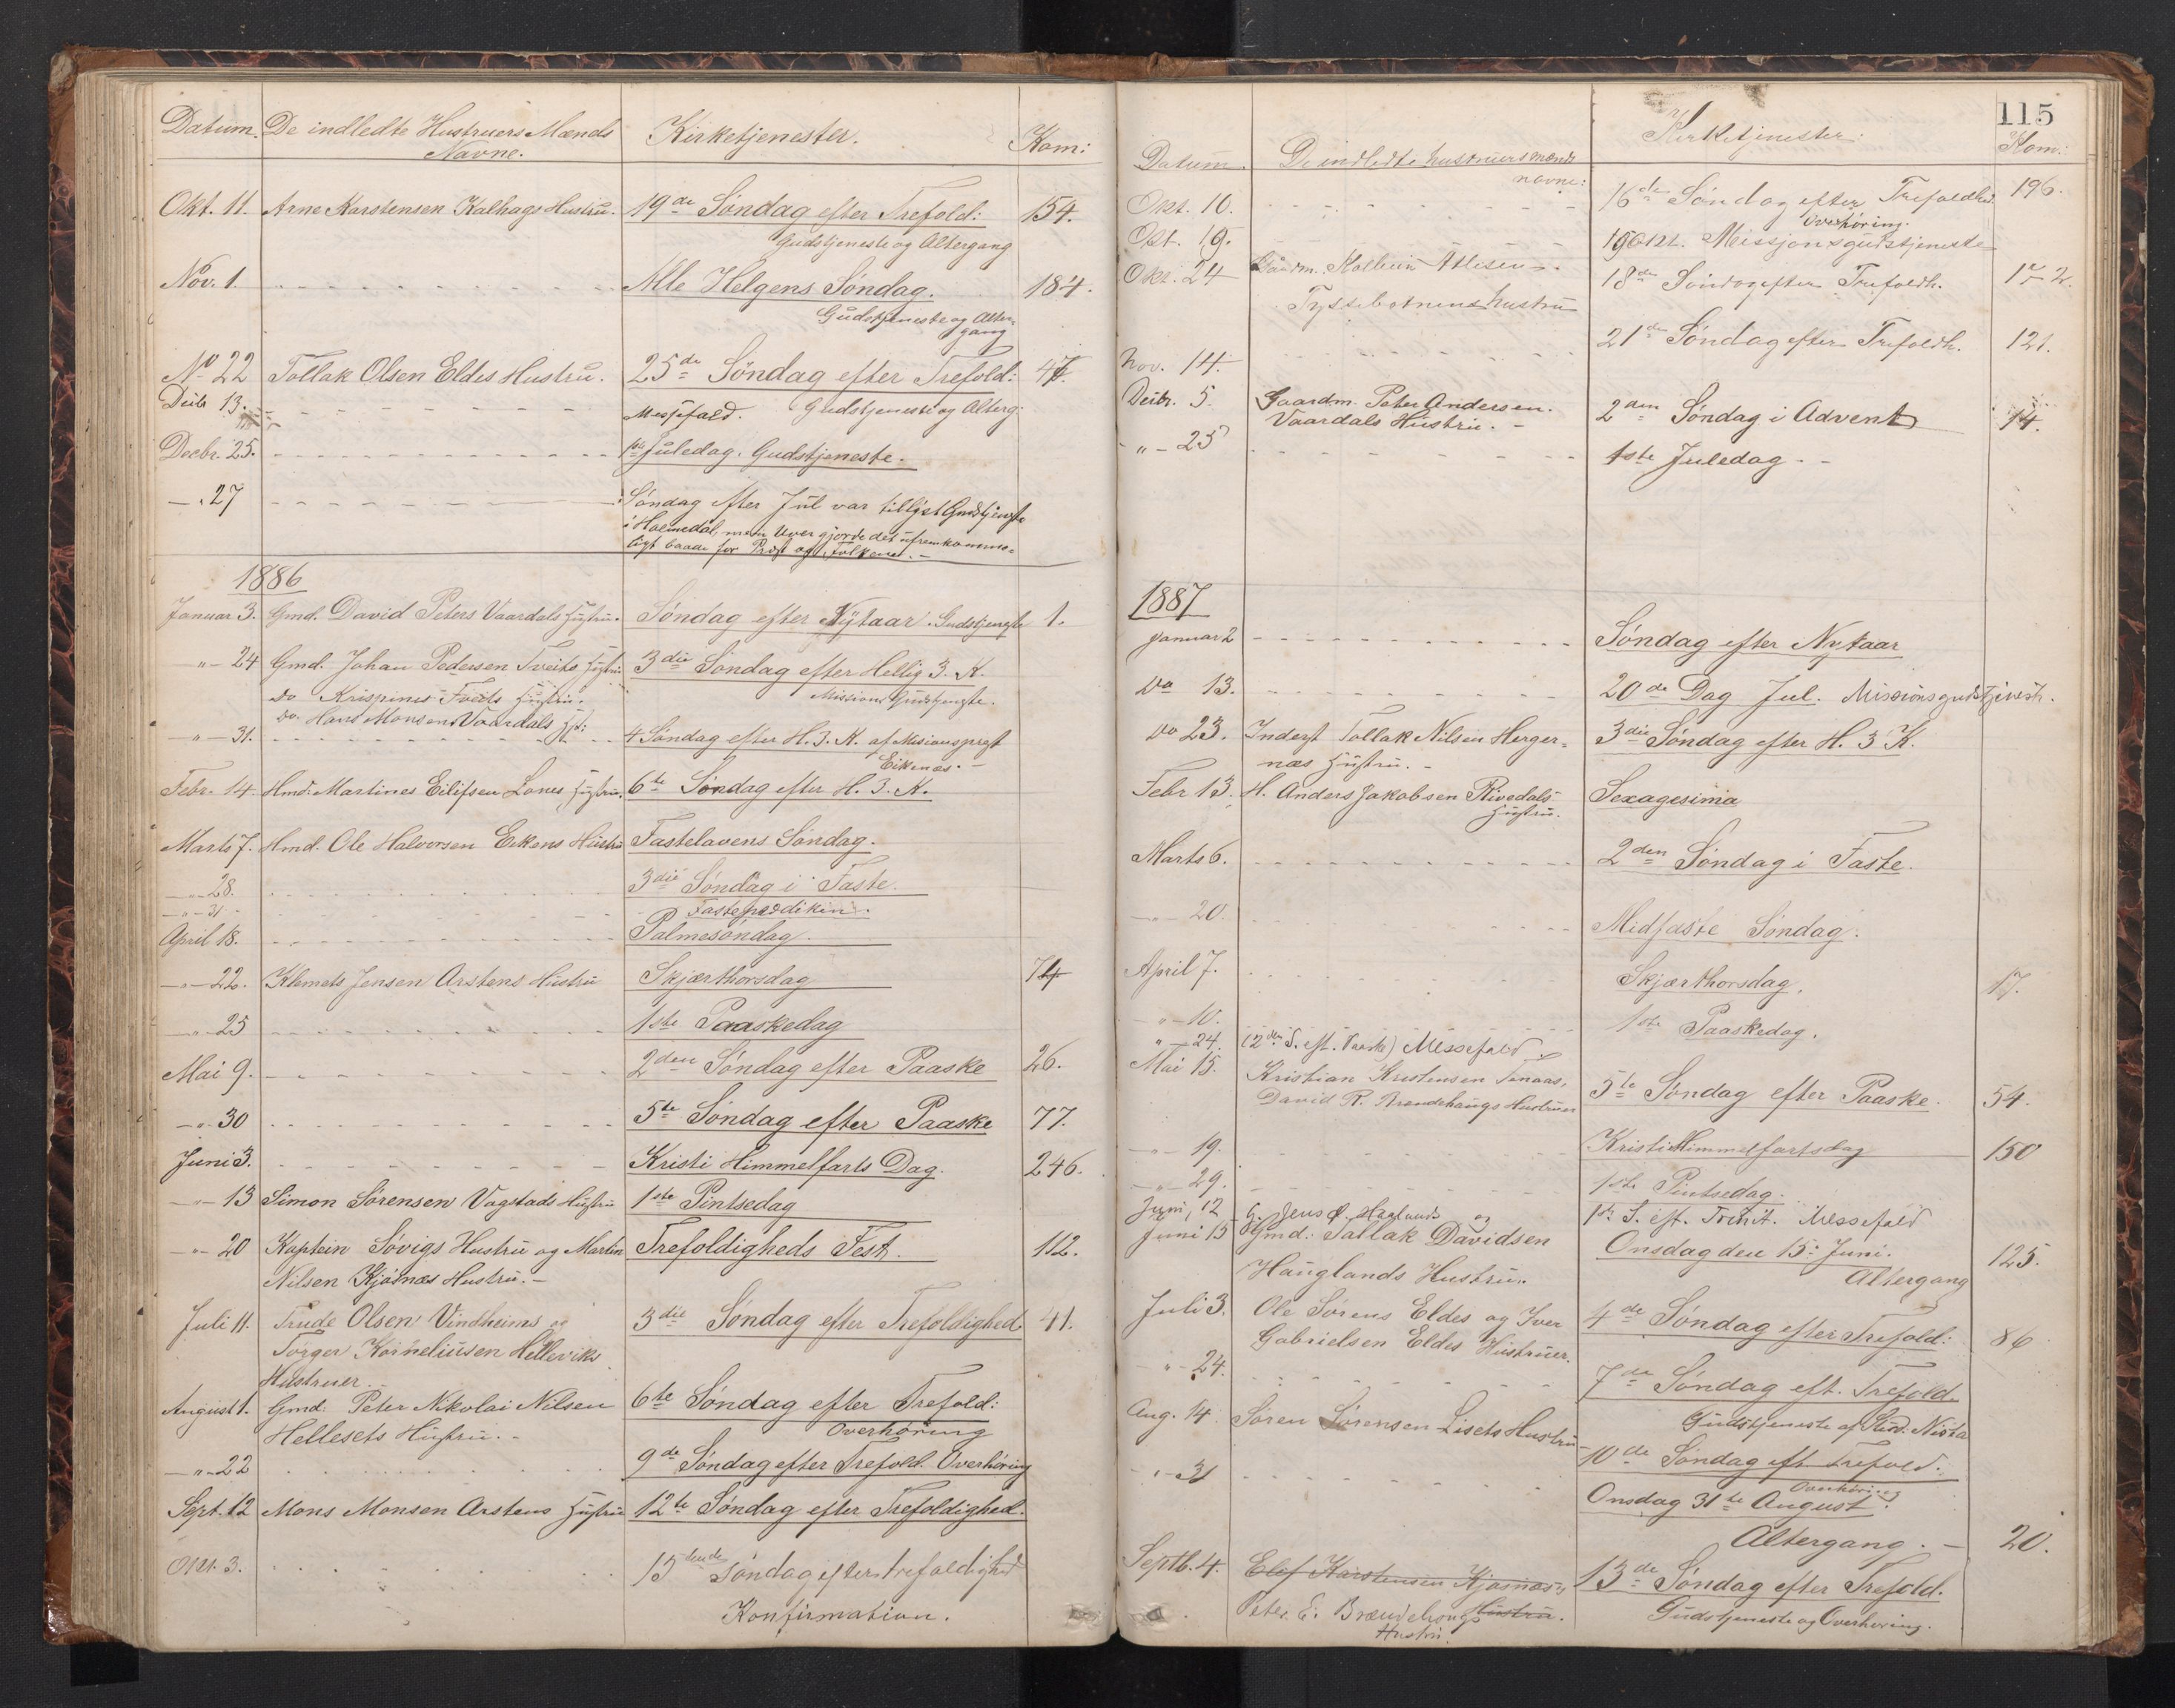 Datum. De indledte Hustruers Mænds Kirketjenester. Kom:
Navne.
Okt. 11. Arne Karstensen Kalhags Hustru. 19de Søndag efter Trefold: 154.
Gudstjeneste og Altergang
Nov. 1. Alle Helgens Søndag. 184.
Gudstjeneste og Alter-
gang
No 22 Tollak Olsen Eldes Hustru. 25de Søndag efter Trefold: 47.
Gudstjeneste og Alterg:
Decbr 13. Messefald.
Decbr. 25. 1ste Juledag. Gudstjeneste.
" 27 Søndag efter Jul var tillyst Gudstjeneste
i Holmedal, men Uveir gjorde det ufremkomme-
ligt baade for Præst og Folkene. -
1886
Januar 3. Gmd. David Peters Vaardals Hustru. Søndag efter Nytaar. Gudstjeneste 1.
" 24 Gmd. Johan Pedersen Tveits Hustru 3die Søndag efter Hellig 3. K.
do Krispinus Tveits Hustru. Missions Gudstjeneste.
do. Hans Monsen Vaardals Hst:
" 31. 4 Søndag efter H. 3. K. af Misionsprest
Eikenæs. -
Febr. 14. Hmd. Martines Eilifsen Lones Hustru. 6te Søndag efter H. 3. K.
Marts 7. Hmd. Ole Halvorsen Eikens Hustru Fastelavens Søndag.
" 28. 3die Søndag i Faste.
" 31 Fasteprædiken.
April 18. Palmesøndag.
" 22. Klemets Jensen Arstens Hustru Skjærthorsdag 74
" 25 1ste Paaskedag
Mai 9. 2den Søndag efter Paaske 26.
" 30 5te Søndag efter Paaske 77.
Juni 3. Kristi Himmelfarts Dag. 246.
" 13 Simon Sørensen Vagstads Hustru 1ste Pintsedag
" 20 Kaptein Søvigs Hustru og Martin Trefoldigheds Fest. 112.
Nilsen Kjøsnæs Hustru. -
Juli 11. Trude Olsen Vindheims og 3die Søndag efter Trefoldighed. 41.
Torger Korneliusen Helleviks
Hustruer.
August 1. Gmd: Peter Nikolai Nilsen 6te Søndag efter Trefold:
Hellesets Hustru. Overhøring
" 22 9de Søndag efter Trefold. Overhøring
Sept. 12 Mons Monsen Arstens Hustru 12te Søndag efter Trefoldighed.
Okt. 3. 15tende Søndag efter trefoldighed
Konfirmation.
115
Datum. De indledte hustruers mænds Kirketjenester: Kom:
navne:
Okt. 10. 16de Søndag efter Trefoldhed. 196.
Overhøring.
Okt. 19. 19 Okt. Missionsgudstjeneste
Okt. 24 Gaardm. Kolbein Atlesen 18de Søndag efter Trefoldh. 172.
Tyssebotnens hustru
Nov. 14. 21de Søndag efter Trefoldh. 121.
Decbr. 5. Gaardm. Peter Andersen. 2den Søndag i Advent 14.
Vaardals Hustru. -
" 25 1ste Juledag. -
1887
Januar 2 Søndag efter Nytaar
do 13. 20de Dag Jul. Missionsgudstjenest.
do 23. Inderst Tollak Nilsen Herger- 3die Søndag efter H. 3 K.
næs Hustru. -
Febr 13. H. Anders Jakobsen Rivedals Sexagesima
Hustru.
Marts 6. 2den Søndag i Faste.
" 20. Midfaste Søndag.
April 7. Skjærthorsdag. 17.
" 10. 1ste Paaskedag.
" 24. (2den S. eft. Paaske) Messefald
Mai 15. Kristian Kristensen Tenaas, 5te Søndag efter Paaske. 54.
David R. Brændehaugs Hustruer
" 19. Kristi Himmelfartsdag 150
" 29. 1ste Pintsedag.
Juni, 12 G. Jens O. Haglunds og 1ste S. eft. Trinit. Messefald
Juni 15 Gmd: Tallak Davidsen Onsdag den 15: Juni. 125.
Hauglands Hustru. Altergang
Juli 3. Ole Sørens Eldes og Iver 4de Søndag efter Trefold: 86
Gabrielsen Eldes Hustruer.
" 24. 7de Søndag eft. Trefold.
Gudstjeneste af Nista
Aug. 14. Søren Sørensen Lisets Hustru 10de Søndag eft Trefold.
Overhøring
" 31 Onsdag 31te August.
Altergang. - 20.
Septb. 4. Elef Karstensen Kjøsnæs 13de Søndag efter Trefold.
Hustru. Gudstjeneste og Overhøring.
Peter E. Brændehougs
Hustru.